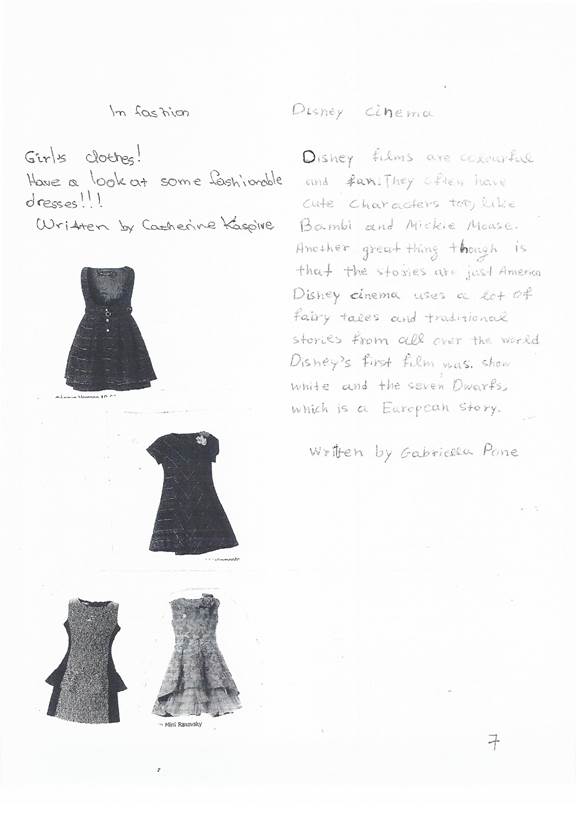 In fashion
Girl's clothes!
Have a look at some fashionable
dresses!!!
Written by Catherine Kaspire
Mini Raxevsky
Disney cinema
Disney films are colourful
and fun. They often have
cute characters too, like
Bambi and Mickie Mouse.
Another great thing though is
that the stories are just America
Disney cinema uses a lot of
fairy tales and traditional
stories from all over the world
Disney's first film was. show
white and the seven Dwarfs,
which is a European story.
Written by Gabriella Pane
7